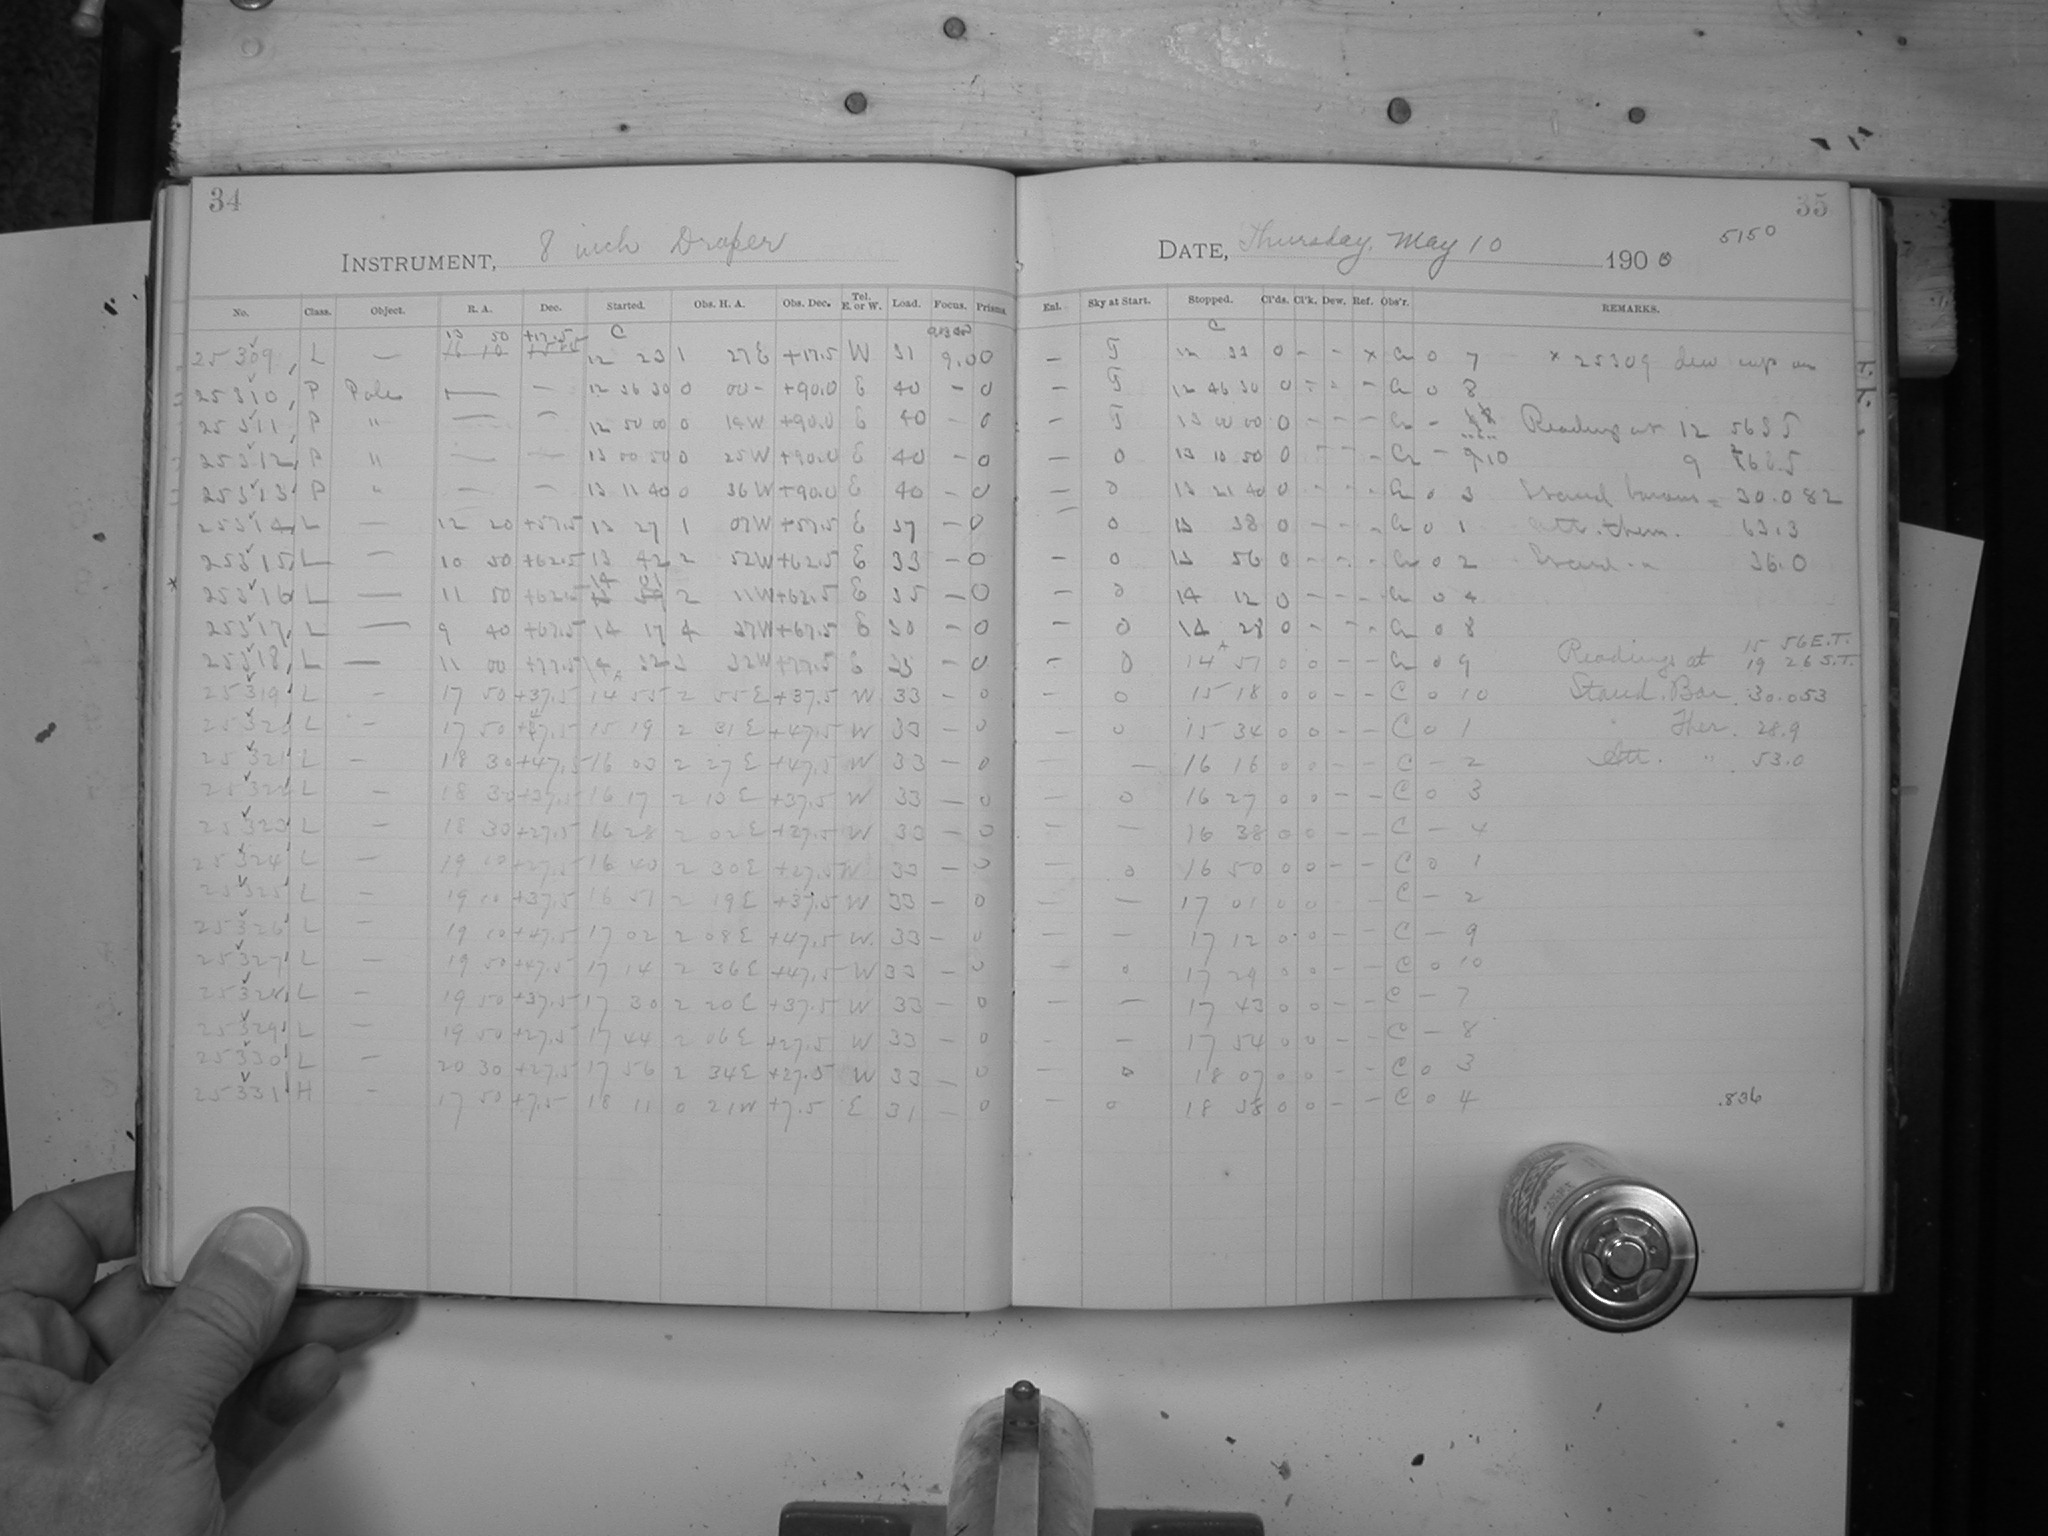 34
INSTRUMENT, 8 inch Draper
No. Class. Object. R. A. Dec. Started. Obs. H. A. Obs. Dec. Tel. E. or W. Load. Focus. Prisms.
13 50 +17.5 C
25309, L — 12 23 1 27 E +17.5 W 31 9.00
25310, P Pole — — 12 36 30 0 00 - +90.0 E 40 - 0
25311, P " — — 12 50 00 0 14 W +90.0 E 40 - 0
25312, P " — — 13 00 50 0 25 W +90.0 E 40 - 0
25313, P " — — 13 11 40 0 36 W +90.0 E 40 - 0
25314, L — 12 20 +57.5 13 27 1 07 W +57.5 E 37 - 0
25315, L — 10 50 +62.5 13 42 2 52 W +62.5 E 33 - 0
* 25316, L — 11 50 +62.5 14 01 2 11 W +62.5 E 35 - 0
25317, L — 9 40 +67.5 14 17 4 37 W +67.5 E 30 - 0
25318, L — 11 00 +77.5 14 32 3 32 W +77.5 E 35 - 0
25319, L - 17 50 +37.5 14 55 2 55 E +37.5 W 33 - 0
25320, L - 17 50 +47.5 15 19 2 31 E +47.5 W 33 - 0
25321, L - 18 30 +47.5 16 03 2 27 E +47.5 W 33 - 0
25322, L - 18 30 +37.5 16 17 2 13 E +37.5 W 33 - 0
25323, L - 18 30 +27.5 16 28 2 02 E +27.5 W 33 - 0
25324, L - 19 10 +27.5 16 40 2 30 E +27.5 W 33 - 0
25325, L - 19 10 +37.5 16 51 2 19 E +37.5 W 33 - 0
25326, L - 19 10 +47.5 17 02 2 08 E +47.5 W. 33 - 0
25327, L - 19 50 +47.5 17 14 2 36 E +47.5 W 33 - 0
25328, L - 19 50 +37.5 17 30 2 20 E +37.5 W 33 - 0
25329, L - 19 50 +27.5 17 44 2 06 E +27.5 W 33 - 0
25330, L - 20 30 +27.5 17 56 2 34 E +27.5 W 33 - 0
25331, H - 17 50 +7.5 18 11 0 21 W +7.5 E 31 - 0
35
5150
DATE, Thursday, May 10 1900
Enl. Sky at Start. Stopped. Cl'ds. Cl'k. Dew. Ref. Obs'r. REMARKS.
C
- 5 12 33 0 - - x 0 7 x 25309 dew cap on
- 5 12 46 30 0 - - - 0 8
- 5 13 00 00 0 - - - - Readings at 12 56 S T
- 0 13 10 50 0 - - - - 9,10 9
- 0 13 21 40 0 - - - 0 3 Stand barom = 30.082
0 13 38 0 - - - 0 1 Att. therm. 63.3
- 0 13 56 0 - - - 0 2 Stand " 36.0
- 0 14 12 0 - - - 0 4
- 0 14 28 0 - - - 0 8
- 0 14 51 0 0 - - 0 9 Readings at 15 56 E.T. 19 26 S.T.
- 0 15 18 0 0 - - C 0 10 Stand. Bar. 30.053
- 0 15 34 0 0 - - C 0 1 " Ther. 28.9
- 16 16 0 0 - - C - 2 Att. " 53.0
- 0 16 27 0 0 - - C 0 3
- - 16 38 0 0 - - C - 4
- 0 16 50 0 0 - - C 0 1
- - 17 01 0 0 - - C - 2
- - 17 12 0 0 - - C - 9
- 0 17 29 0 0 - - C 0 10
- - 17 43 0 0 - - C - 7
- - 17 54 0 0 - - C - 8
- 0 18 07 0 0 - - C 0 3
- 0 18 38 0 0 - - C 0 4 .836